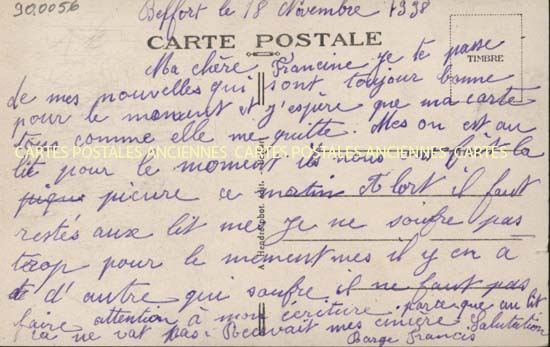 90.0056
Belfort le 18 Novembre 1938
CARTE POSTALE
TIMBRE
Ma chère Francine je te passe
de mes nouvelles qui sont toujour bonne
pour le moment et j'espère que ma carte
comme elle me quitte. Mes on est au
CARTES POSTALES ANCIENNES CARTES POSTALES ANCIENNES CARTES
lit pour le moment nous la
picure ce matin Alort il faut
restés aux lit mes je ne soufre pas
trop pour le moment mes il y en à
d'autre qui soufre il ne faut pas
faire attention à mon ecriture parce que au lit
ca ne vat pas. Recavait mes cincère Salutation
Barge Francis